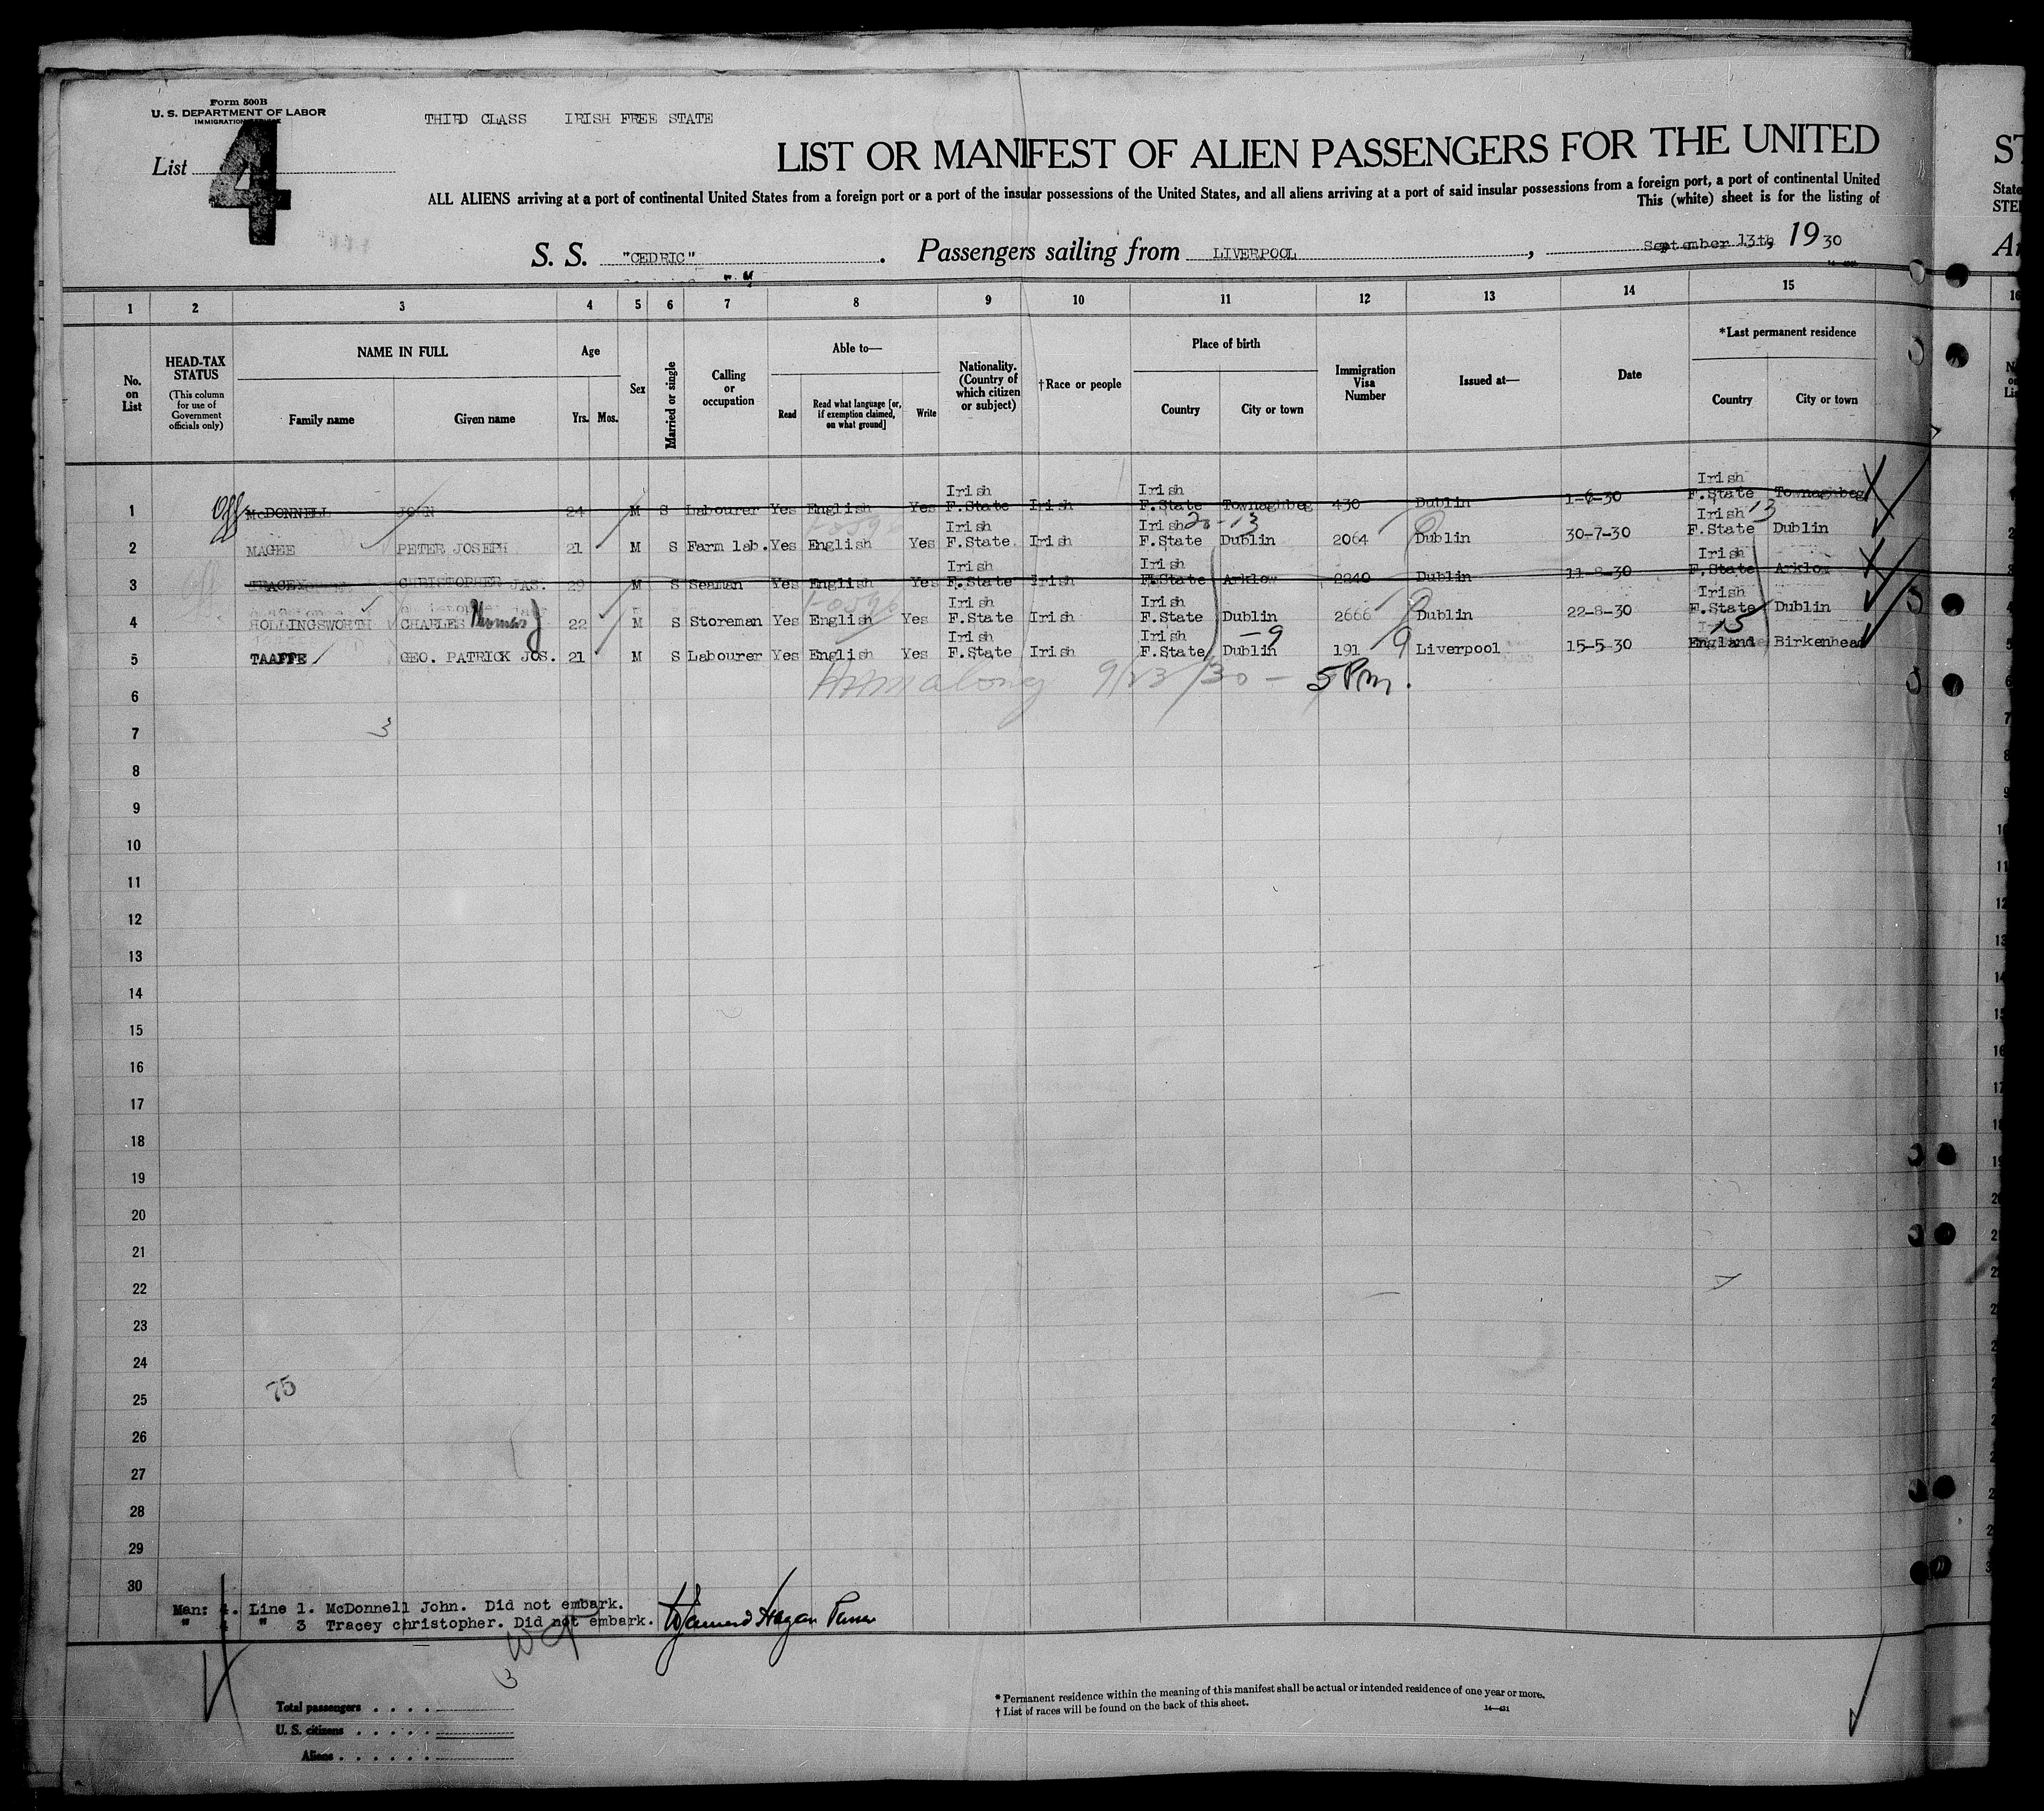 Form 500B
U. S. DEPARTMENT OF LABOR
IMMIGRATION SERVICE
THIRD CLASS IRISH FREE STATE
List 4
LIST OR MANIFEST OF ALIEN PASSENGERS FOR THE UNITED
ALL ALIENS arriving at a port of continental United States from a foreign port or a port of the insular possessions of the United States, and all aliens arriving at a port of said insular possessions from a foreign port, a port of continental United
This (white) sheet is for the listing of
S. S. "CEDRIC". Passengers sailing from LIVERPOOL, September 13th, 1930
1 2 3 4 5 6 7 8 9 10 11 12 13 14 15
No. on List
HEAD-TAX STATUS
(This column for use of Government officials only)
NAME IN FULL
Family name Given name
Age
Yrs. Mos.
Sex
Married or single
Calling or occupation
Able to—
Read
Read what language [or, if exemption claimed, on what ground]
Write
Nationality. (Country of which citizen or subject)
†Race or people
Place of birth
Country City or town
Immigration Visa Number
Issued at—
Date
*Last permanent residence
Country City or town
1 McDONNELL JOHN 24 M S Labourer Yes English Yes Irish F.State Irish Irish F.State Townaghbeg 430 Dublin 1-6-30 Irish F.State Townaghbeg
2 MAGEE PETER JOSEPH 21 M S Farm lab. Yes English Yes Irish F.State Irish Irish F.State Dublin 2064 Dublin 30-7-30 Irish F.State Dublin
20-13
13
3 TRACEY CHRISTOPHER JAS. 29 M S Seaman Yes English Yes Irish F.State Irish Irish F.State Arklow 2240 Dublin 11-8-30 Irish F.State Arklow
4 HOLLINGSWORTH CHARLES Thomas 22 M S Storeman Yes English Yes Irish F.State Irish Irish F.State Dublin 2666 Dublin 22-8-30 Irish F.State Dublin
5 TAAFFE GEO. PATRICK JOS. 21 M S Labourer Yes English Yes Irish F.State Irish Irish F.State Dublin 191 Liverpool 15-5-30 England Birkenhead
-9
9
15
9/23/30 - 5 Pm.
6
7
3
8
9
10
11
12
13
14
15
16
17
18
19
20
21
22
23
24
25
75
26
27
28
29
30
Man: 4. Line 1. McDonnell John. Did not embark.
" 4 " 3 Tracey christopher. Did not embark.
3
Total passengers
U. S. citizens
Aliens
* Permanent residence within the meaning of this manifest shall be actual or intended residence of one year or more.
† List of races will be found on the back of this sheet.
14—421